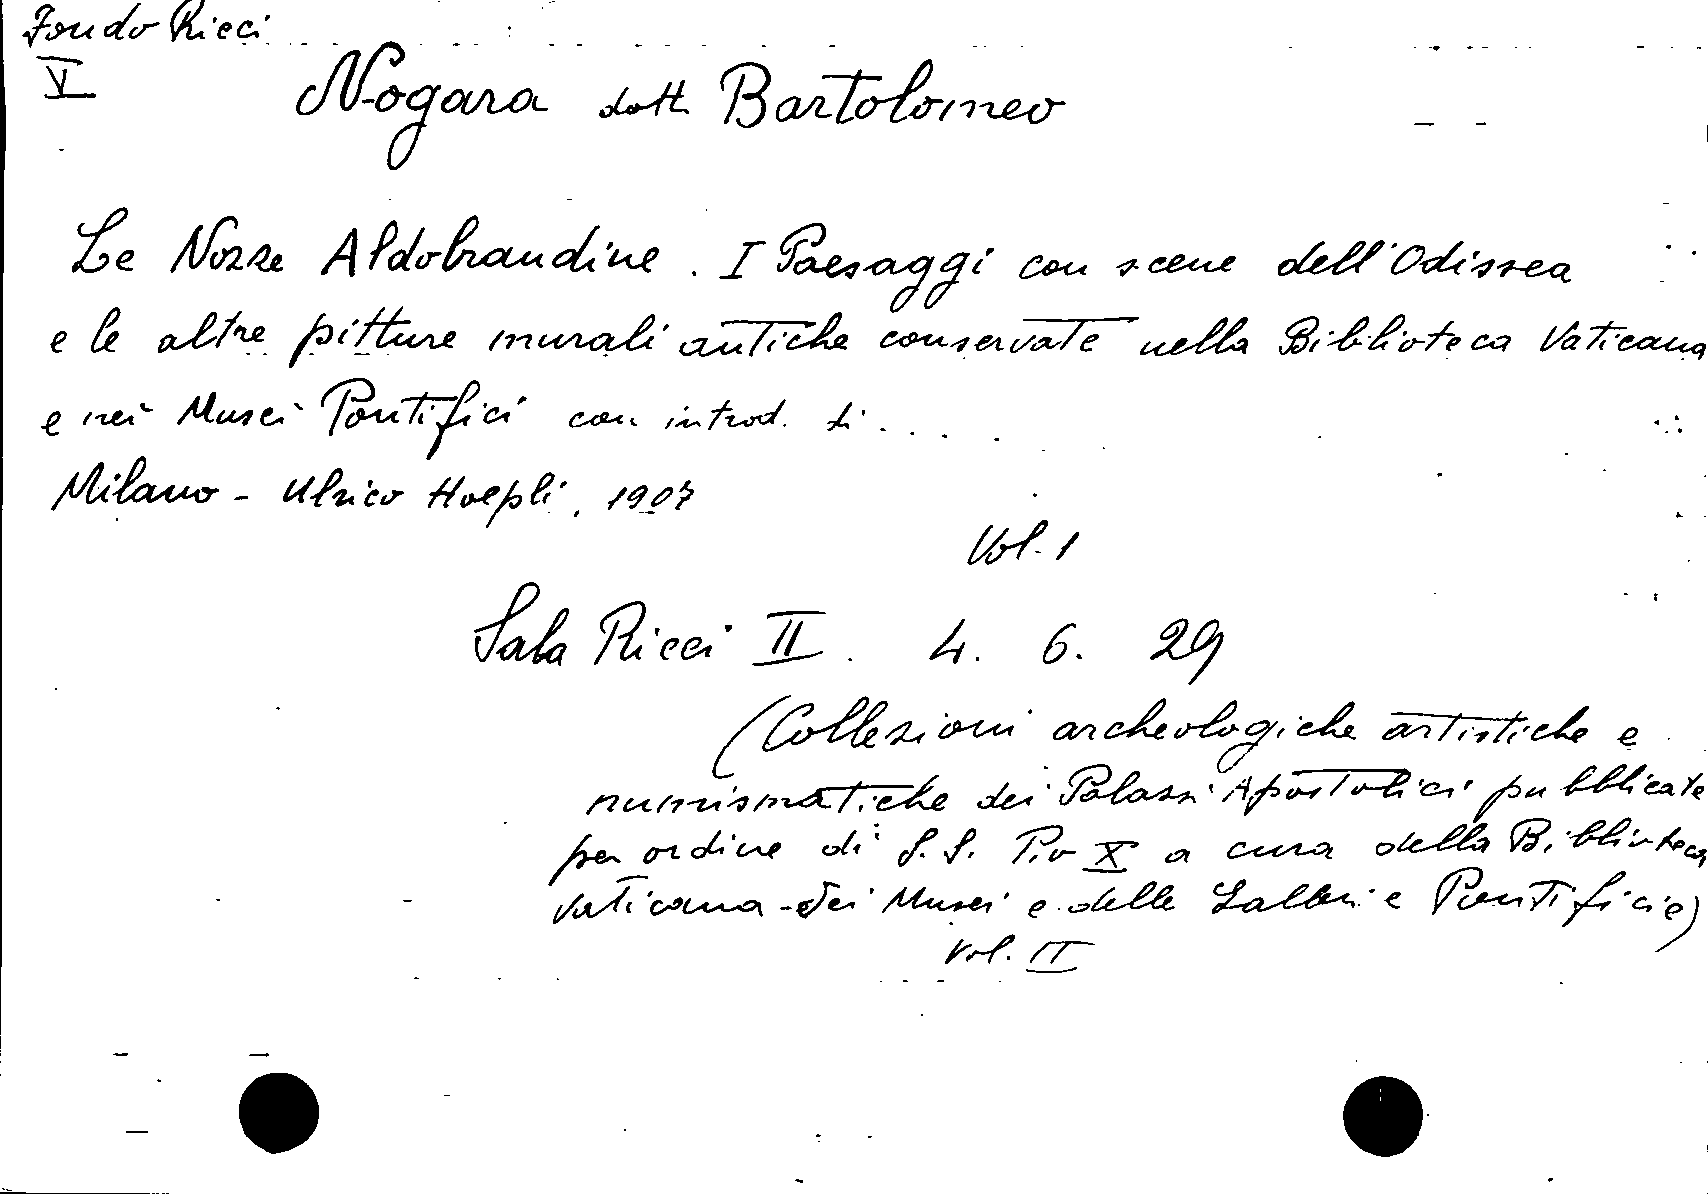 Fondo Ricci
V
Nogara dott. Bartolomeo
Le Nozze Aldobrandine. I Paesaggi con scene dell'Odissea
e le altre pitture murali antiche conservate nella Biblioteca Vaticana
e nei Musei Pontifici con introd. di....
Milano - Ulrico Hoepli, 1907
Vol. 1
Sala Ricci II. 4. 6. 29
(Collezioni archeologiche artistiche e
numismatiche dei Palazzi Apostolici pubblicate
per ordine di S.S. Pio X a cura della Biblioteca
Vaticana - dei Musei e delle Gallerie Pontificie)
Vol. II